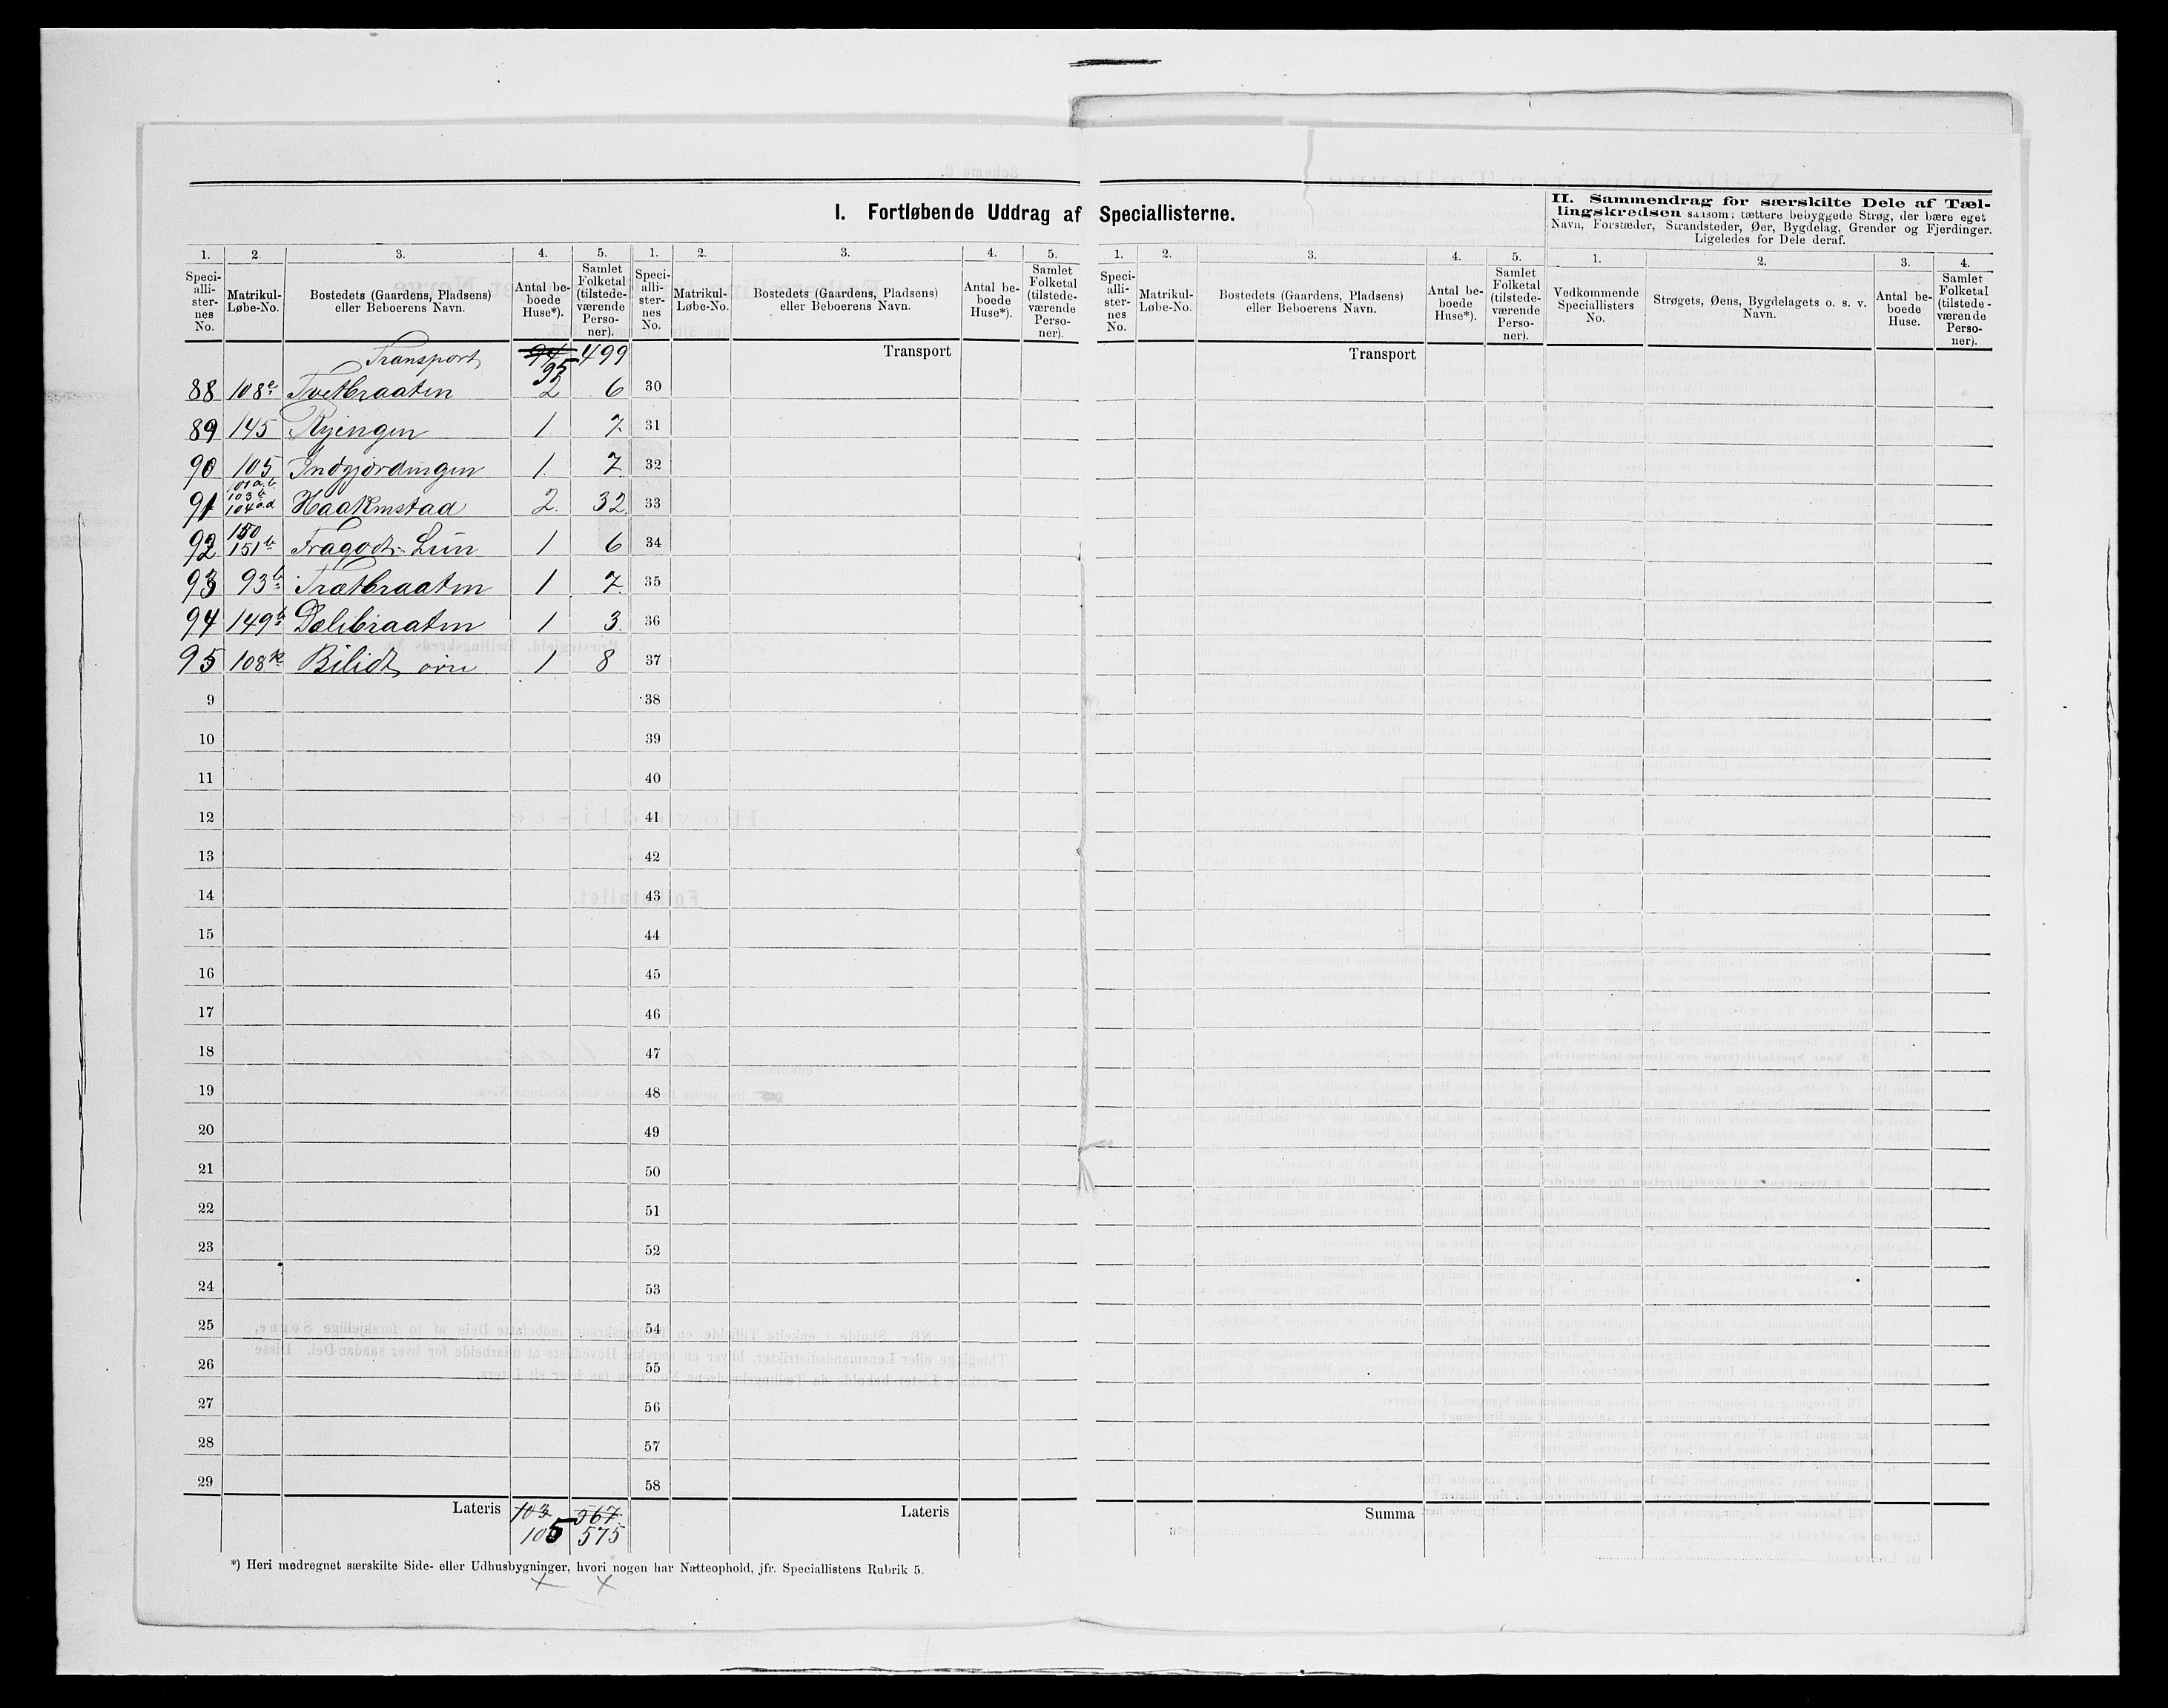 I. Fortløbende Uddrag af Speciallisterne.
II. Sammendrag for særskilte Dele af Tæl-
lingskredsen saasom: tættere bebyggede Strøg, der bære eget
Navn, Forstæder, Strandsteder, Øer, Bygdelag, Grender og Fjerdinger.
Ligeledes for Dele deraf.
1. 2 3. 4. 5. 1. 2. 3. 4. 5. 1. 2. 3. 4. 5. 1. 2. 3. 4.
Speci-alli-ster-nes No. Matrikul-Løbe-No. Bostedets (Gaardens, Pladsens) eller Beboerens Navn. Antal be-boede Huse*). Samlet Folketal (tilstede-værende Perso-ner).
Speci-alli-ster-nes No. Matrikul-Løbe-No. Bostedets (Gaardens, Pladsens) eller Beboerens Navn. Antal be-boede Huse*). Samlet Folketal (tilstede-værende Perso-ner).
Speci-alli-ster-nes No. Matrikul-Løbe-No. Bostedets (Gaardens, Pladsens) eller Beboerens Navn. Antal be-boede Huse*). Samlet Folketal (tilstede-værende Perso-ner).
Vedkommende Speciallisters No. Strøgets, Øens, Bygdelagets o. s. v. Navn. Antal be-boede Huse. Samlet Folketal (tilstede-værende Perso-ner).
Transport 94 499 Transport Transport
95
88 108e Tvetbraaten 2 6 30
89 145 Ryengen 1 7 31
90 105 Indgjordingen 1 7 32
101 a.b.
91 103b 104a.d Haakenstad 2. 32. 33
92 150 151b Fragodt-Lun 1 6 34
93 93b Trætbraaten 1 7. 35
94 149b Dælibraaten 1 3. 36
95 108k Bilidt, øvre 1 8 37
9 38
10 39
11 40
12 41
13 42
14 43
15 44
16 45
17 46
18 47
19 48
20 49
21 50
22 51
23 52
24 53
25 54
26 55
27 56
28 57
29 58
Lateris 103 567. Lateris Summa
105 575
*) Heri medregnet særskilte Side- eller Udhusbygninger, hvori nogen har Natteophold, jfr. Speciallistens Rubrik 5.